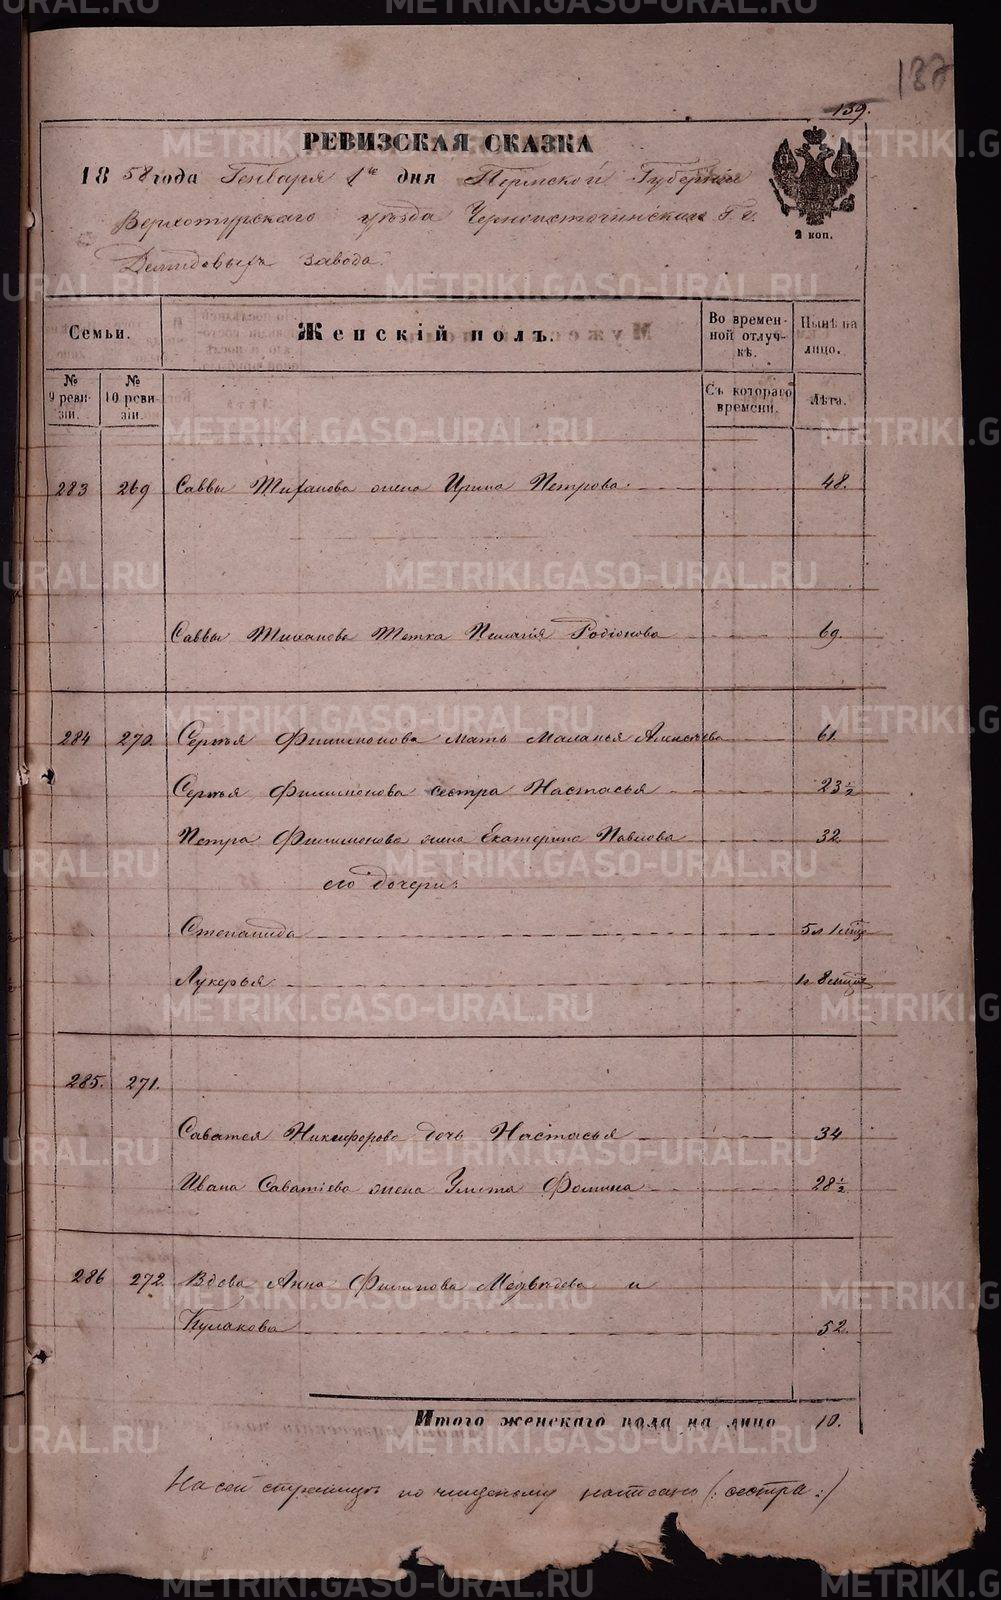 137
139.
РЕВИЗСКАЯ СКАЗКА
1858 года Генваря 1го дня Пермской Губернии
Верхотурскаго уѣзда Черноисточинскаго Г. г.
Демидовыхъ завода.
2 коп.
Семьи.
Женскій полъ.
Во временной отлучкѣ.
Нынѣ на лицо.
№ 9 ревизіи.
№ 10 ревизіи.
Съ котораго времени.
Лѣта.
283 269 Саввы Тиханова жена Ирина Петрова 48.
Саввы Тиханова Тетка Пелагія Родіонова 69.
284 270. Сергѣя Филимонова мать Маланья Алексѣева 61.
Сергѣя Филимонова сестра Настасья 23½
Петра Филимонова жена Екатерина Павлова 32.
его дочери:
Степанида 5 л 1 мѣц
Лукерья 1 г 8 мѣцов
285. 271.
Саватея Никифорова дочь Настасья 34
Ивана Саватіева жена Улита Фомина 28½
286 272. Вдова Анна Филипова Медвѣдева и
Кулакова 52.
Итого женскаго пола на лицо 10.
На сей страницѣ по чищеному написано (: сестра :)
METRIKI.GASO-URAL.RU